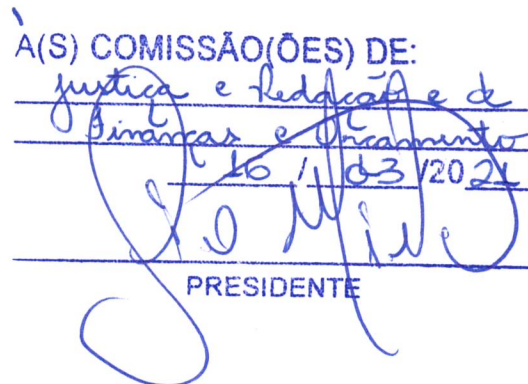 À(S) COMISSÃO(ÕES) DE:
Justiça e Redação e de
Finanças e Orçamento
16 / 03 /2021
PRESIDENTE